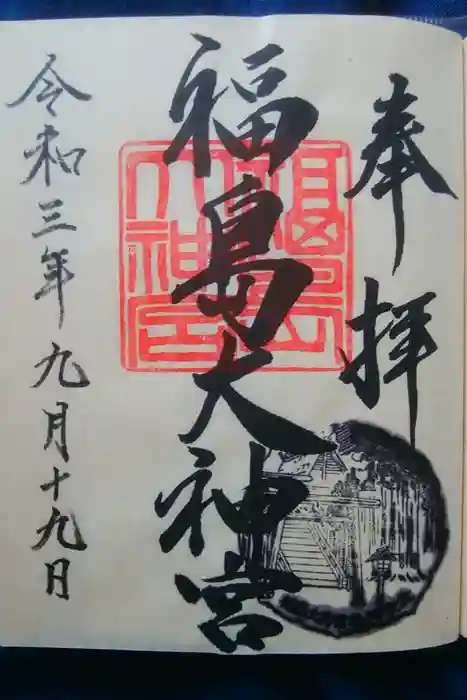 奉拝
福島大神宮
令和三年九月十九日